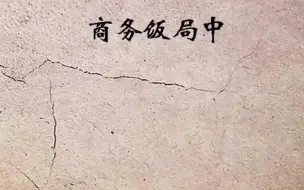 商务饭局中